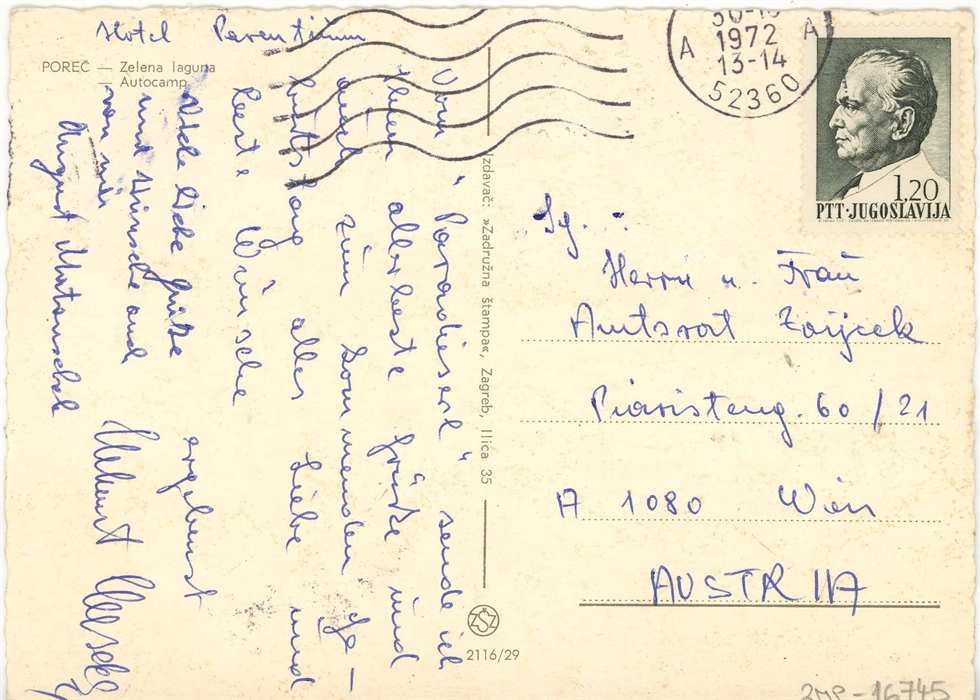 Hotel Parentium
POREČ — Zelena laguna
Autocamp
Vom "Paradieserl" sende ich
Ihnen allerbeste Grüße und
auch zum kommenden Ge-
burtstag alles Liebe und
beste Wünsche
ergebenst
Helmut
Alles Liebe Grüße
und Wünsche auch
von mir
August
Izdavač: »Zadružna štampa«, Zagreb, Ilica 35
ZSZ
2116/29
A A
30-10
1972
13-14
52360
1,20
PTT·JUGOSLAVIJA
Sg.
Herrn u. Frau
Amtsrat Zaijcek
Piaristeng. 60/21
A 1080 Wien
AUSTRIA
2MP-16745